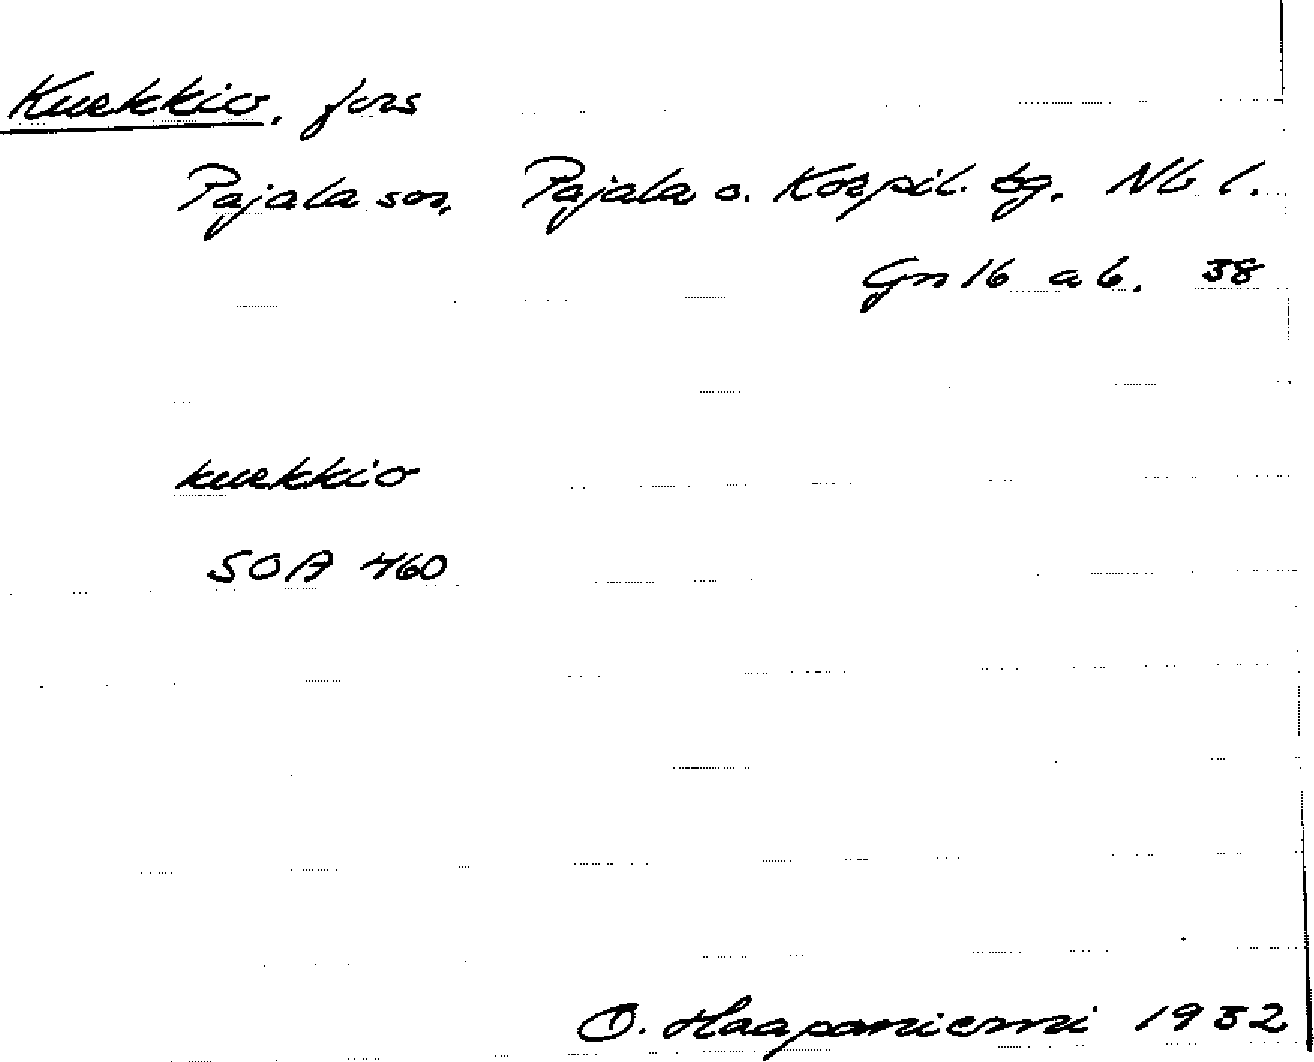 Kurkkio, fors
Pajala sn, Pajala o. Korpil. tg. Nb l.
Gn 16 a b. 38
kurkkio
SOA 460
O. Haapaniemi 1932